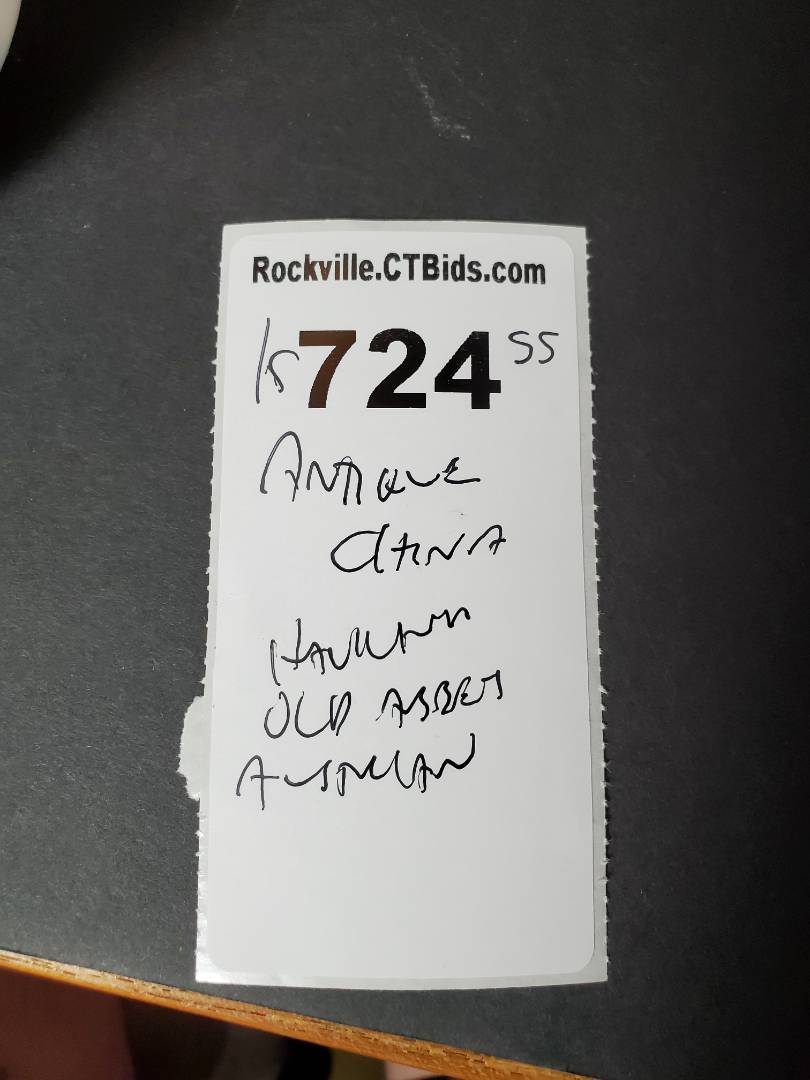 Rockville.CTBids.com
15 724 55
ANTIQUE
CHINA
HAVILAND
OLD ABBEY
AUSTRIAN